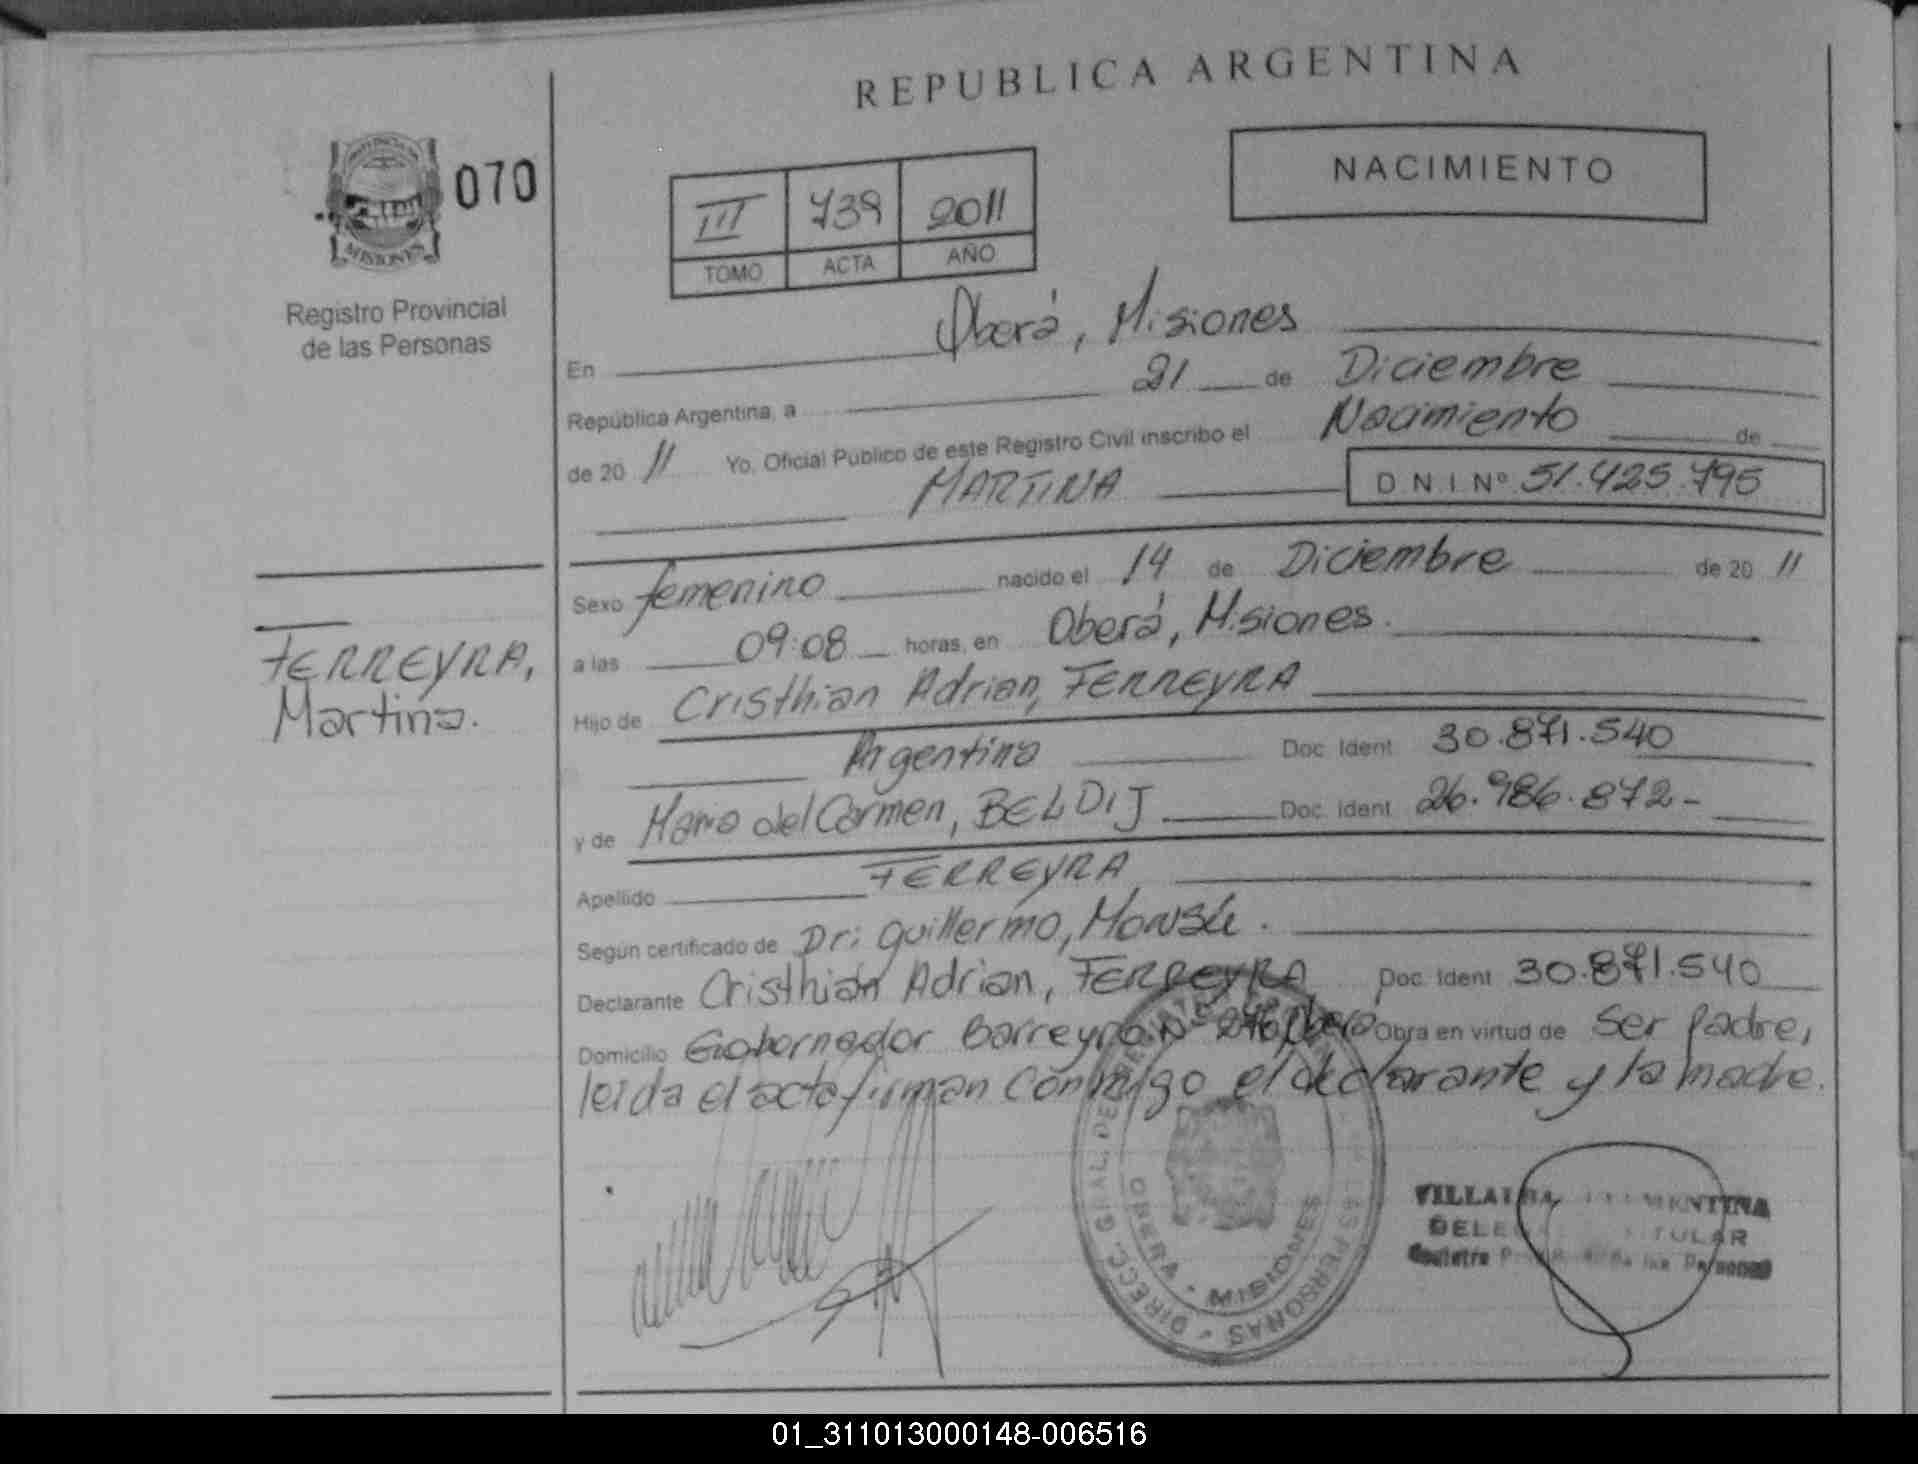 REPUBLICA ARGENTINA
070
MISIONES
Registro Provincial
de las Personas
III 739 2011
TOMO ACTA AÑO
NACIMIENTO
En Oberá, Misiones
República Argentina, a 21 de Diciembre
de 20 11 Yo, Oficial Publico de este Registro Civil inscribo el Nacimiento de
MARTINA D N I Nº 51.425.795
FERREYRA,
Martina.
Sexo femenino nacido el 14 de Diciembre de 20 11
a las 09:08 horas, en Oberá, Misiones.
Hijo de Cristhian Adrian, FERREYRA
Argentina Doc. Ident 30.871.540
y de Maria del Carmen, BELDIJ Doc. Ident 26.986.872-
Apellido FERREYRA
Según certificado de Dr: Guillermo,
Declarante Cristhian Adrian, FERREYRA Doc. Ident 30.871.540
Domicilio Gobernador Barreyro Nº 276 Oberá Obra en virtud de Ser Padre,
leida el acta firman conmigo el declarante y la madre.
DIRECC. GRAL. DE LAS PERSONAS
OBERA - MISIONES
VILLALBA
TITULAR
01_311013000148-006516